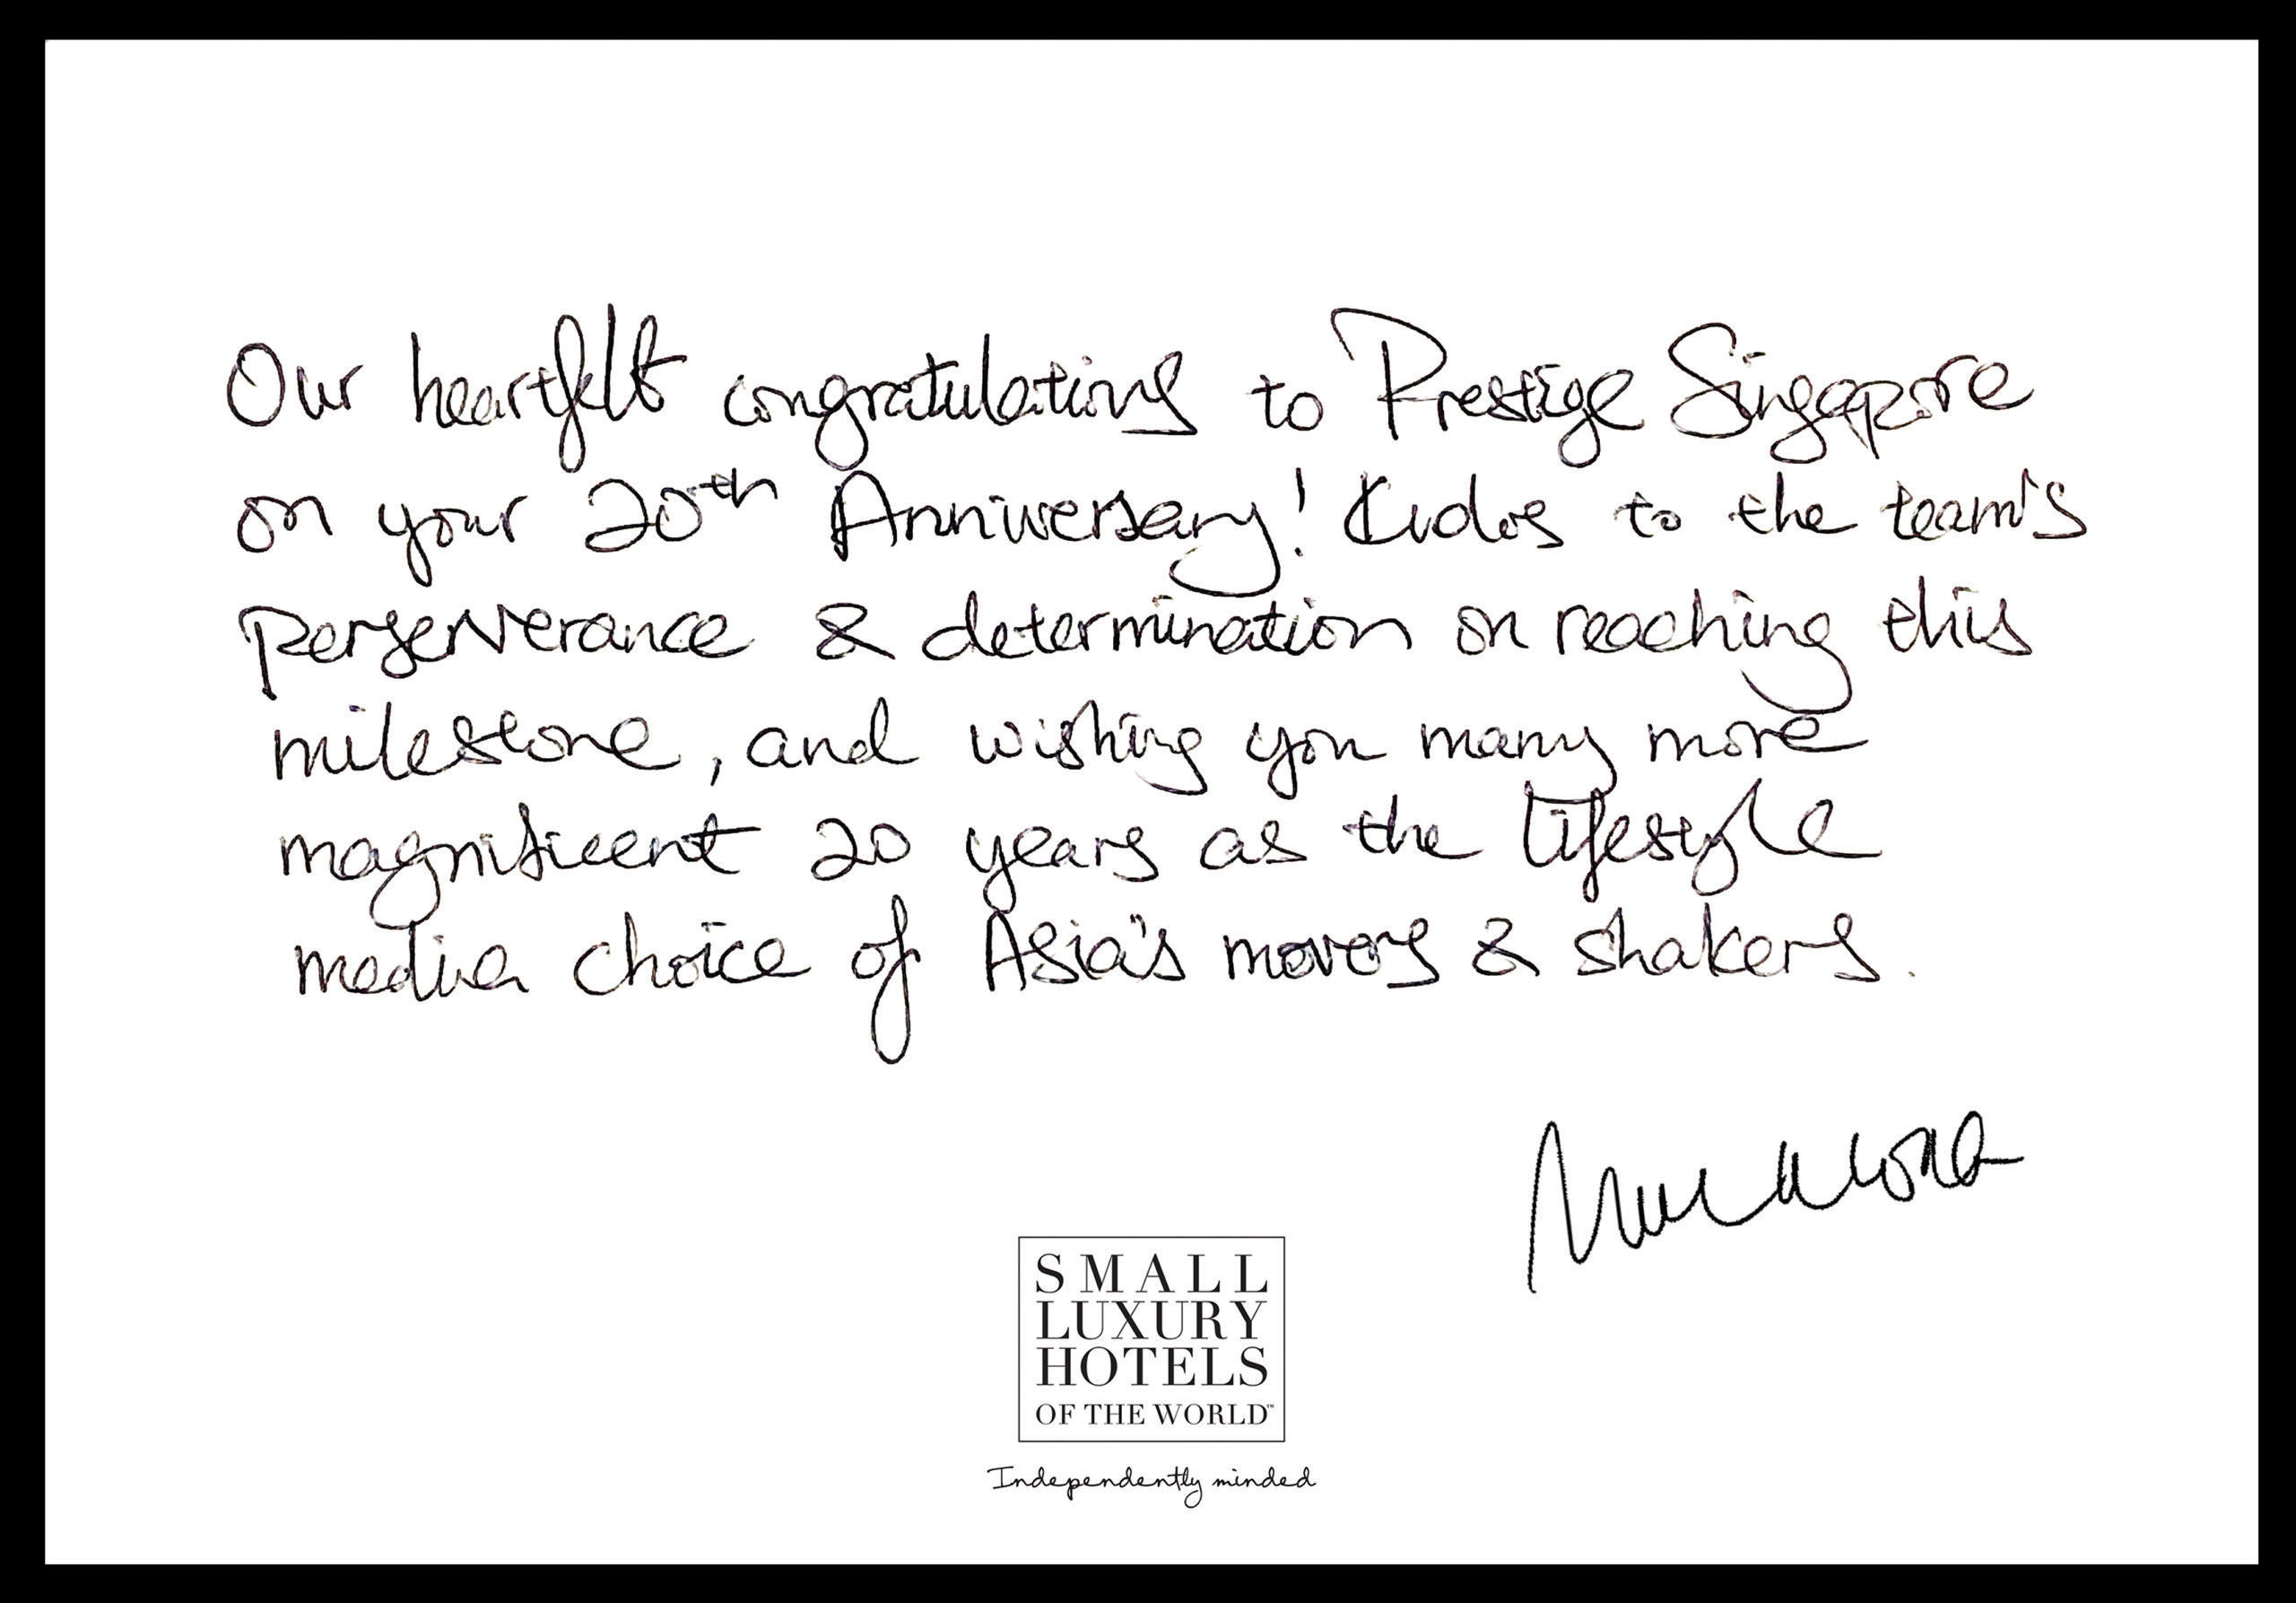 Our heartfelt congratulations to Prestige Singapore
on your 20th Anniversary! Kudos to the team's
perserverance & determination on reaching this
milestone, and wishing you many more
magnificent 20 years as the lifestyle
media choice of Asia's movers & shakers.
SMALL
LUXURY
HOTELS
OF THE WORLD™
Independently minded